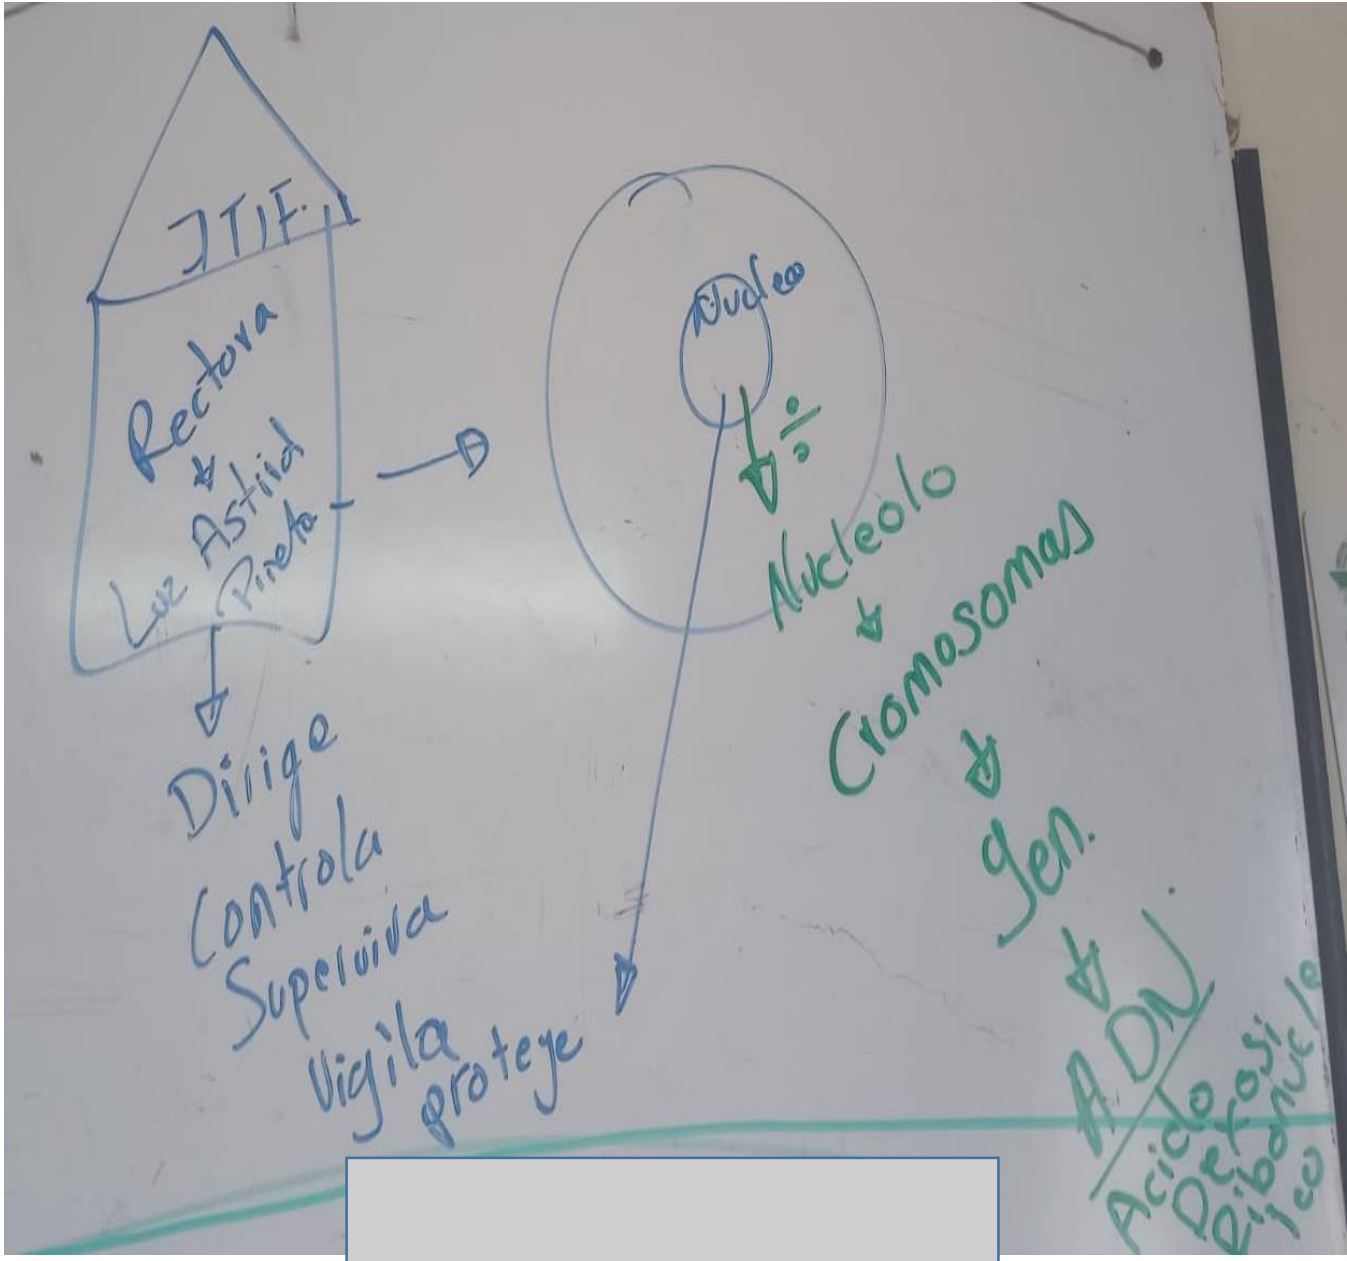 ITIF.
Rectora
Luz Astrid
Pineta
Dirige
Controla
Superviva
Vigila
protege
Nucleo
÷
Nucleolo
Cromosomas
gen.
ADN
Acido
Desoxi
Ribonucle
ico